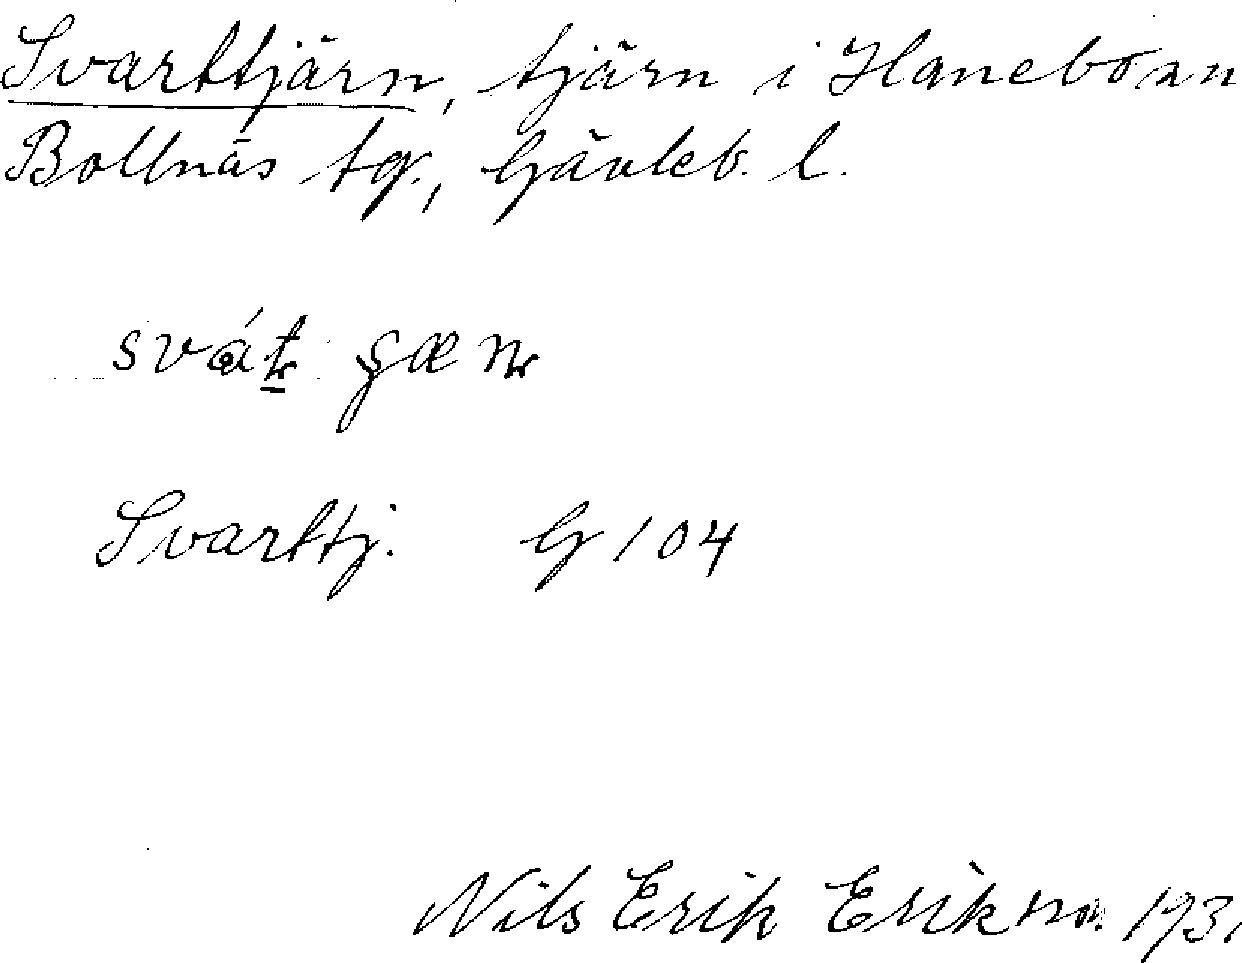 Svarttjärn, tjärn i Hanebo sn
Bollnäs tg., Gävleb. l.
Svarttj. G 104
Nils Erik Erikson. 193